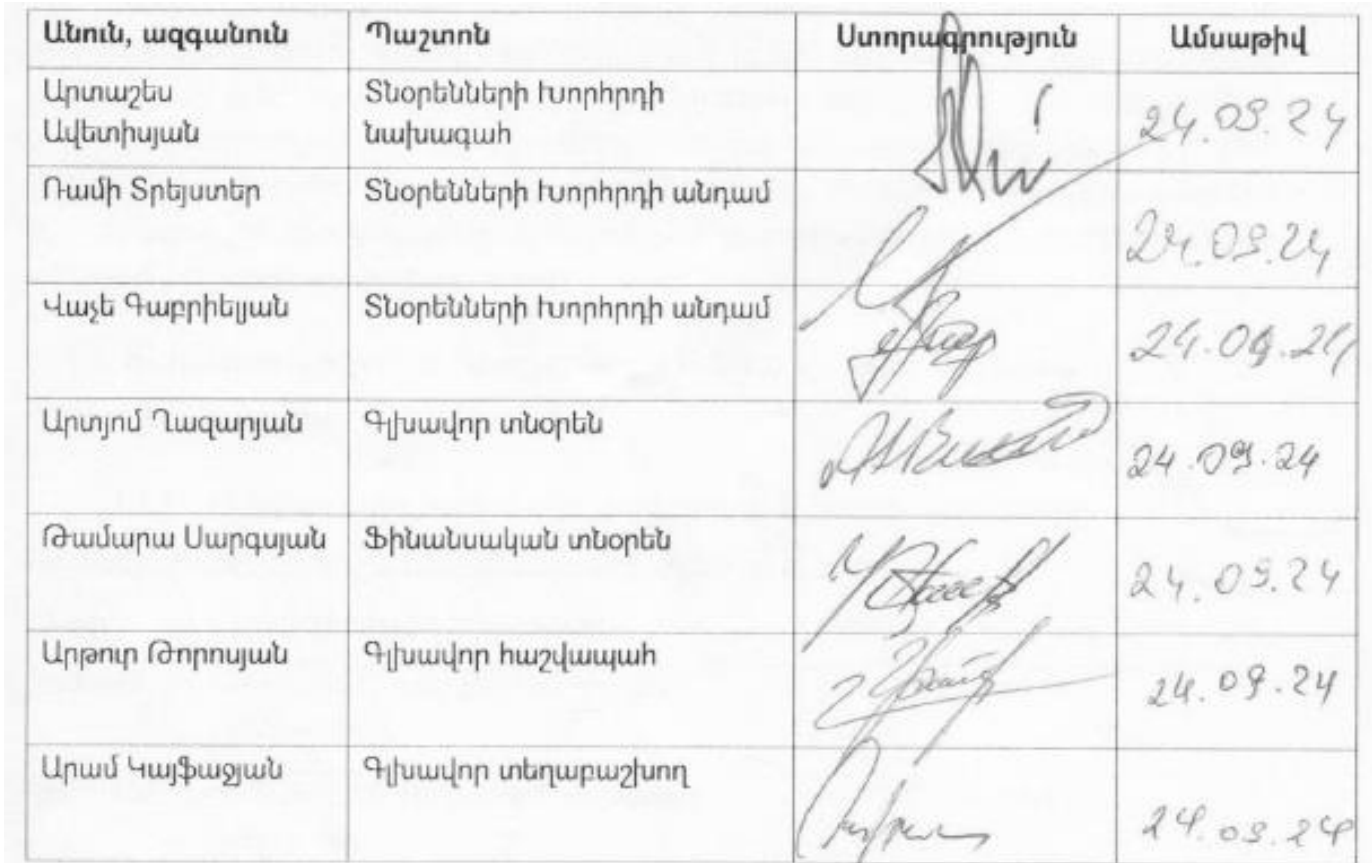 Անուն, ազգանուն Պաշտոն Ստորագրություն Ամսաթիվ
Արտաշես Տնօրենների Խորհրդի
Ավետիսյան նախագահ 24.09.24
Ռամի Տրեյստեր Տնօրենների Խորհրդի անդամ
24.09.24
Վաչե Գաբրիելյան Տնօրենների Խորհրդի անդամ
24.09.24
Արտյոմ Ղազարյան Գլխավոր տնօրեն
24.09.24
Թամարա Սարգսյան Ֆինանսական տնօրեն
24.09.24
Արթուր Թորոսյան Գլխավոր հաշվապահ
24.09.24
Արամ Կայֆաջյան Գլխավոր տեղաբաշխող
24.09.24